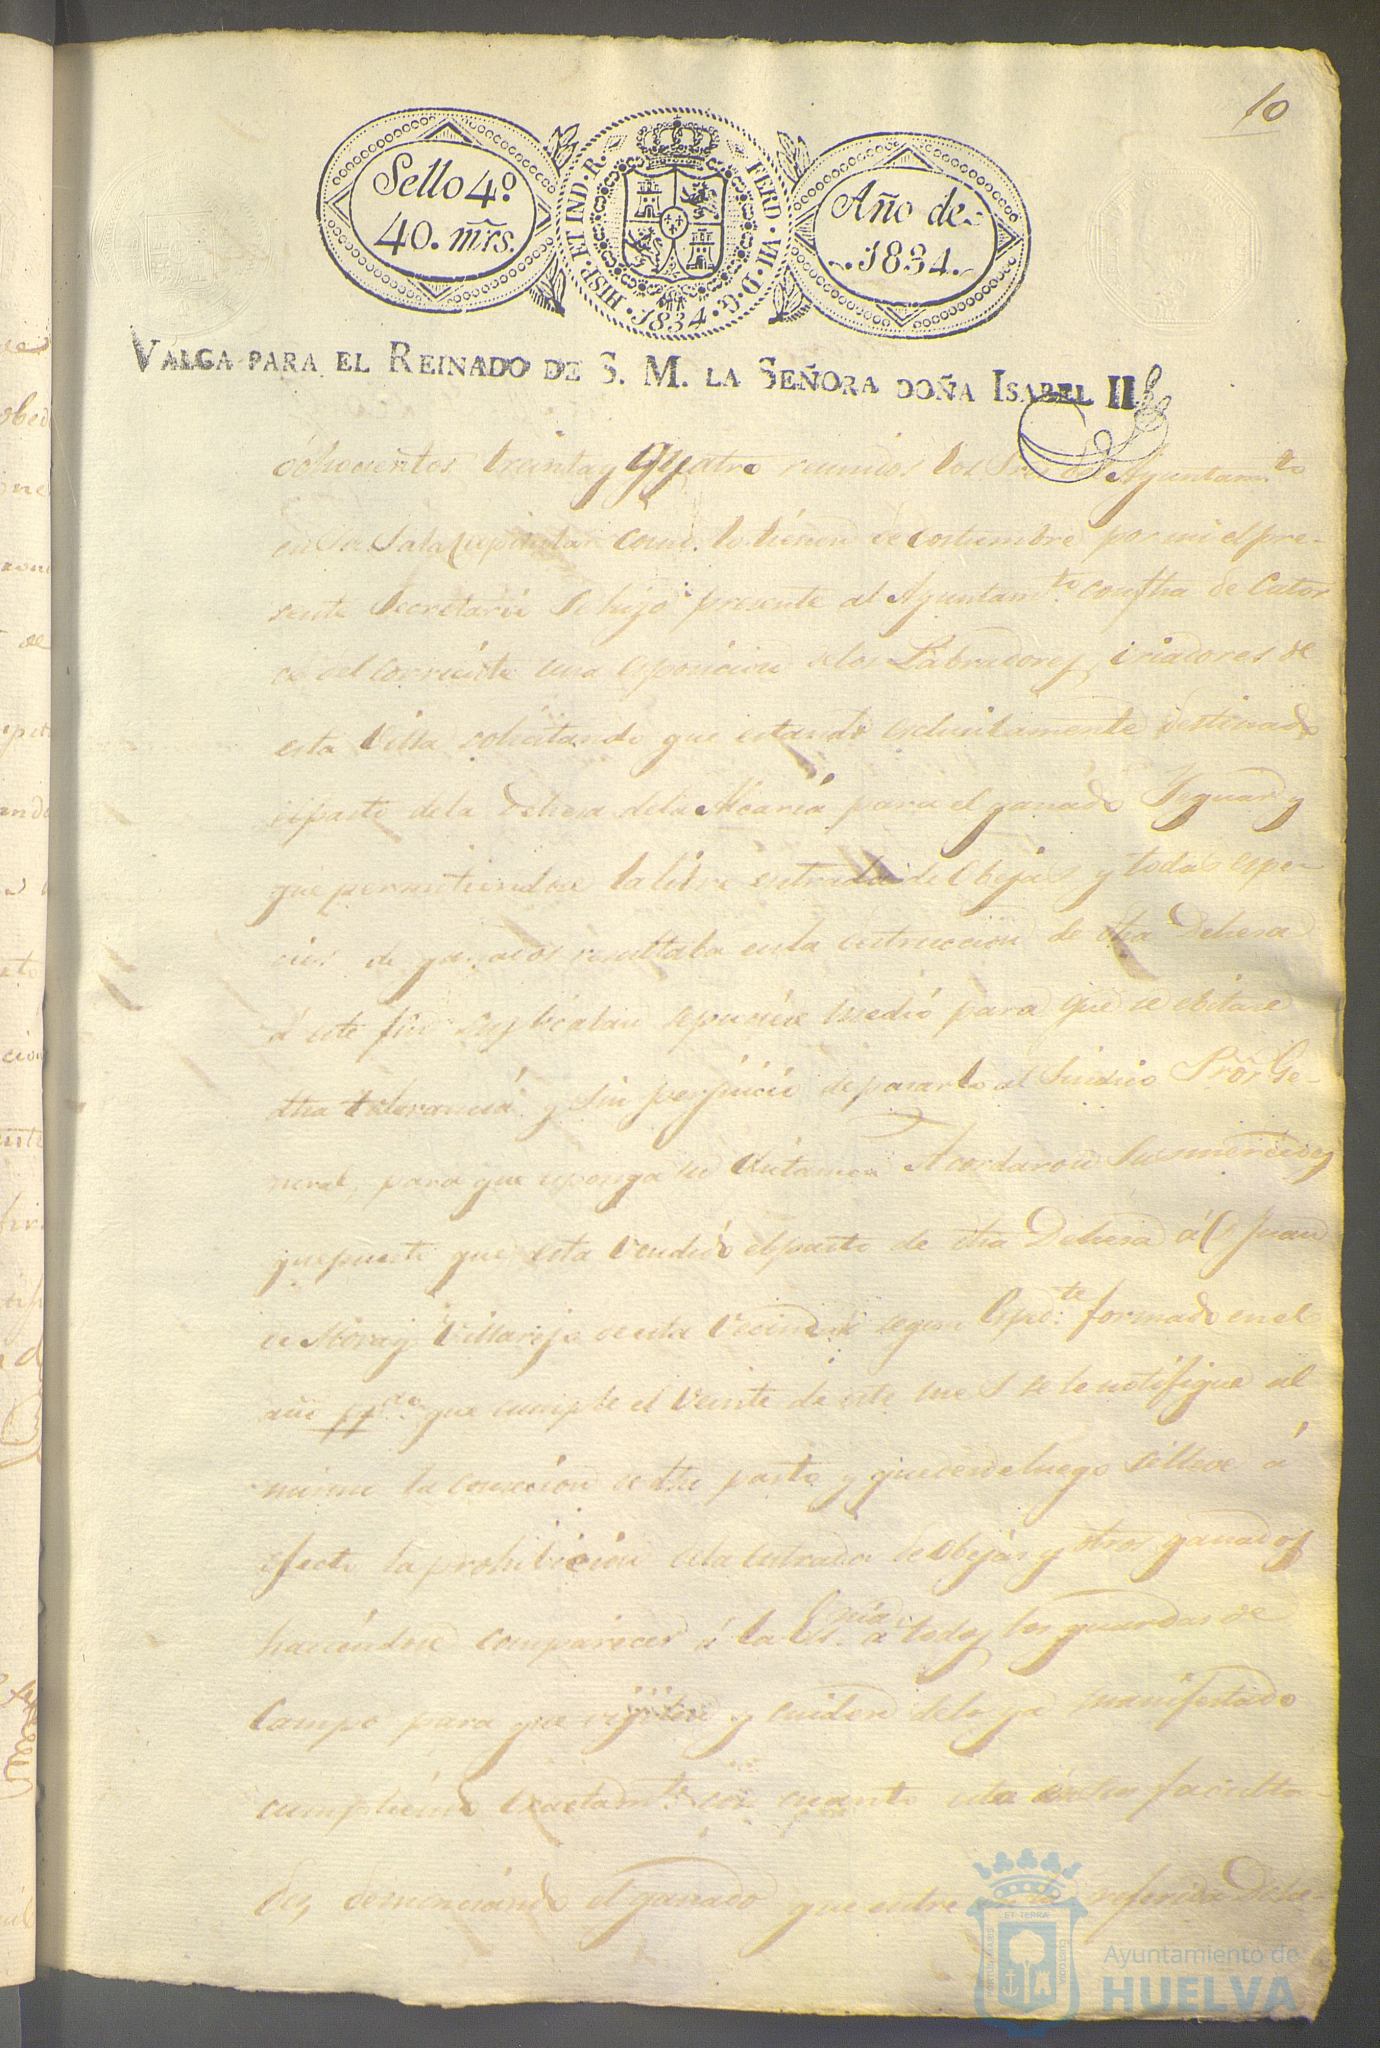 10
Sello 4º
40. mrs.
HISP. ET IND. R. FERD. VII. D. G. 1834.
Año de
1834.
VALGA PARA EL REINADO DE S. M. LA SEÑORA DOÑA ISABEL II
ochocientos treinta y Quatro reunidos los Sres del Ayuntamto
en su Sala Capitular como lo tienen de costumbre por mi el pre-
sente Secretario se hizo presente al Ayuntamto con fha de Cator
ce del corriente una esposicion de los Labradores, criadores de
esta Villa solicitando que estando esclusivamente destinado
el pasto de la Dehesa de la Alcaria para el ganado Yeguar y
que permitiendose la libre entrada de Obejas y todas espe-
cies de ganados resultaba en la destruccion de dha Dehesa
á este fin suplicaban se pusiese medio para que se ebitase
dha tolerancia y sin perjuicio de pasarlo al Sindico Pror Ge-
neral, para que esponga su dictamen Acordaron Sus mercedes
que puesto que esta vendido el pasto de dha Dehesa á D Juan
de Mora y Villarejo de esta Vecindad segun Espedte formado en el
año ppdo que cumple el veinte de este mes se le notifique al
mismo la conclusion de dho pasto y que desde luego se lleve á
efecto la prohibicion de la entrada de obejas y otros ganados
haciendose comparecer á la Esnia a todos los guardas de
Campo para que vijilen y cuiden de lo ya manifestado
cumpliendo exactamte con cuanto esta en sus faculta-
des denunciando el ganado que entre en la referida Dehe-
Ayuntamiento de
HUELVA